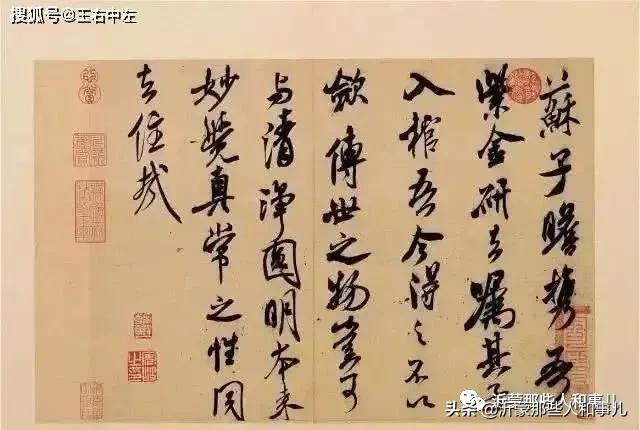 搜狐号@王右中左
蘇子瞻攜吾
紫金研去嘱其子
入棺吾今得之不以
歛傳世之物豈可
与清淨圓明本來
妙覺真常之性同
去住哉
沂蒙那些人和事儿
头条@沂蒙那些人和事儿